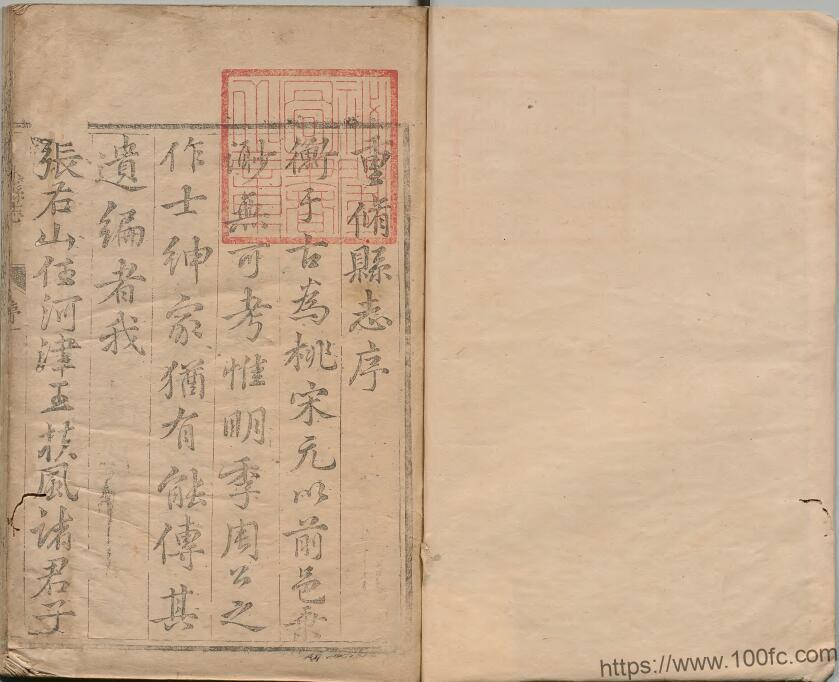 重脩縣志序
衡于古為桃宋元以前邑乘
渺無可考惟明季周公之
作士紳家猶有能傳其
遺編者我
張右山任河津王扶風諸君子
https://www.100fc.com